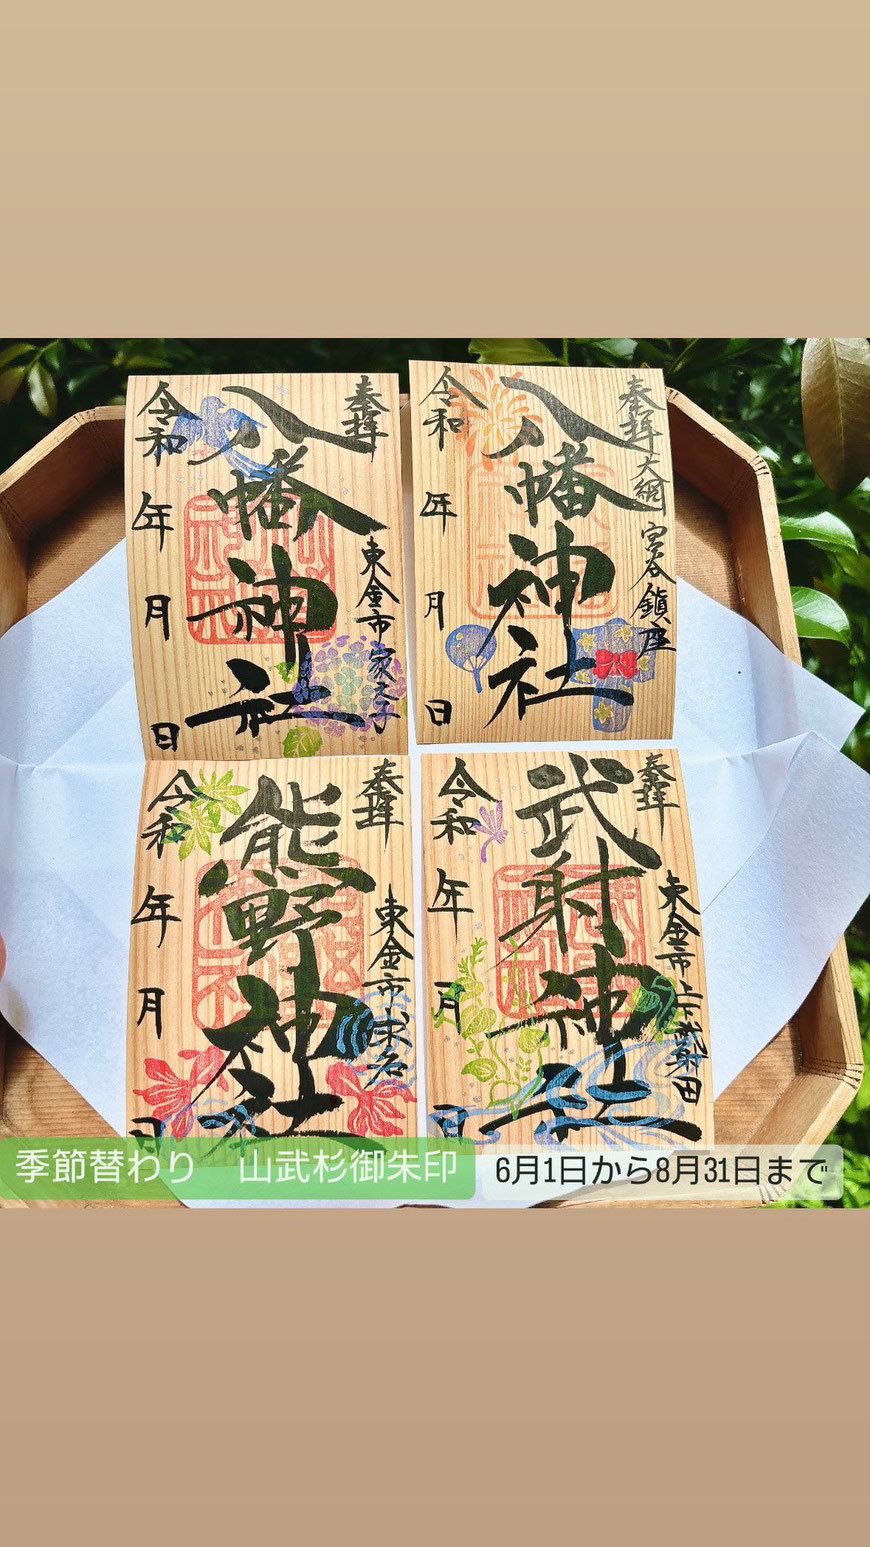 奉拝
八幡神社
東金市家之子
令和 年 月 日
奉拝
大網 宮谷鎮座
八幡神社
令和 年 月 日
奉拝
熊野神社
東金市求名
令和 年 月 日
奉拝
武射神社
東金市上武射田
令和 年 月 日
季節替わり　山武杉御朱印
6月1日から8月31日まで